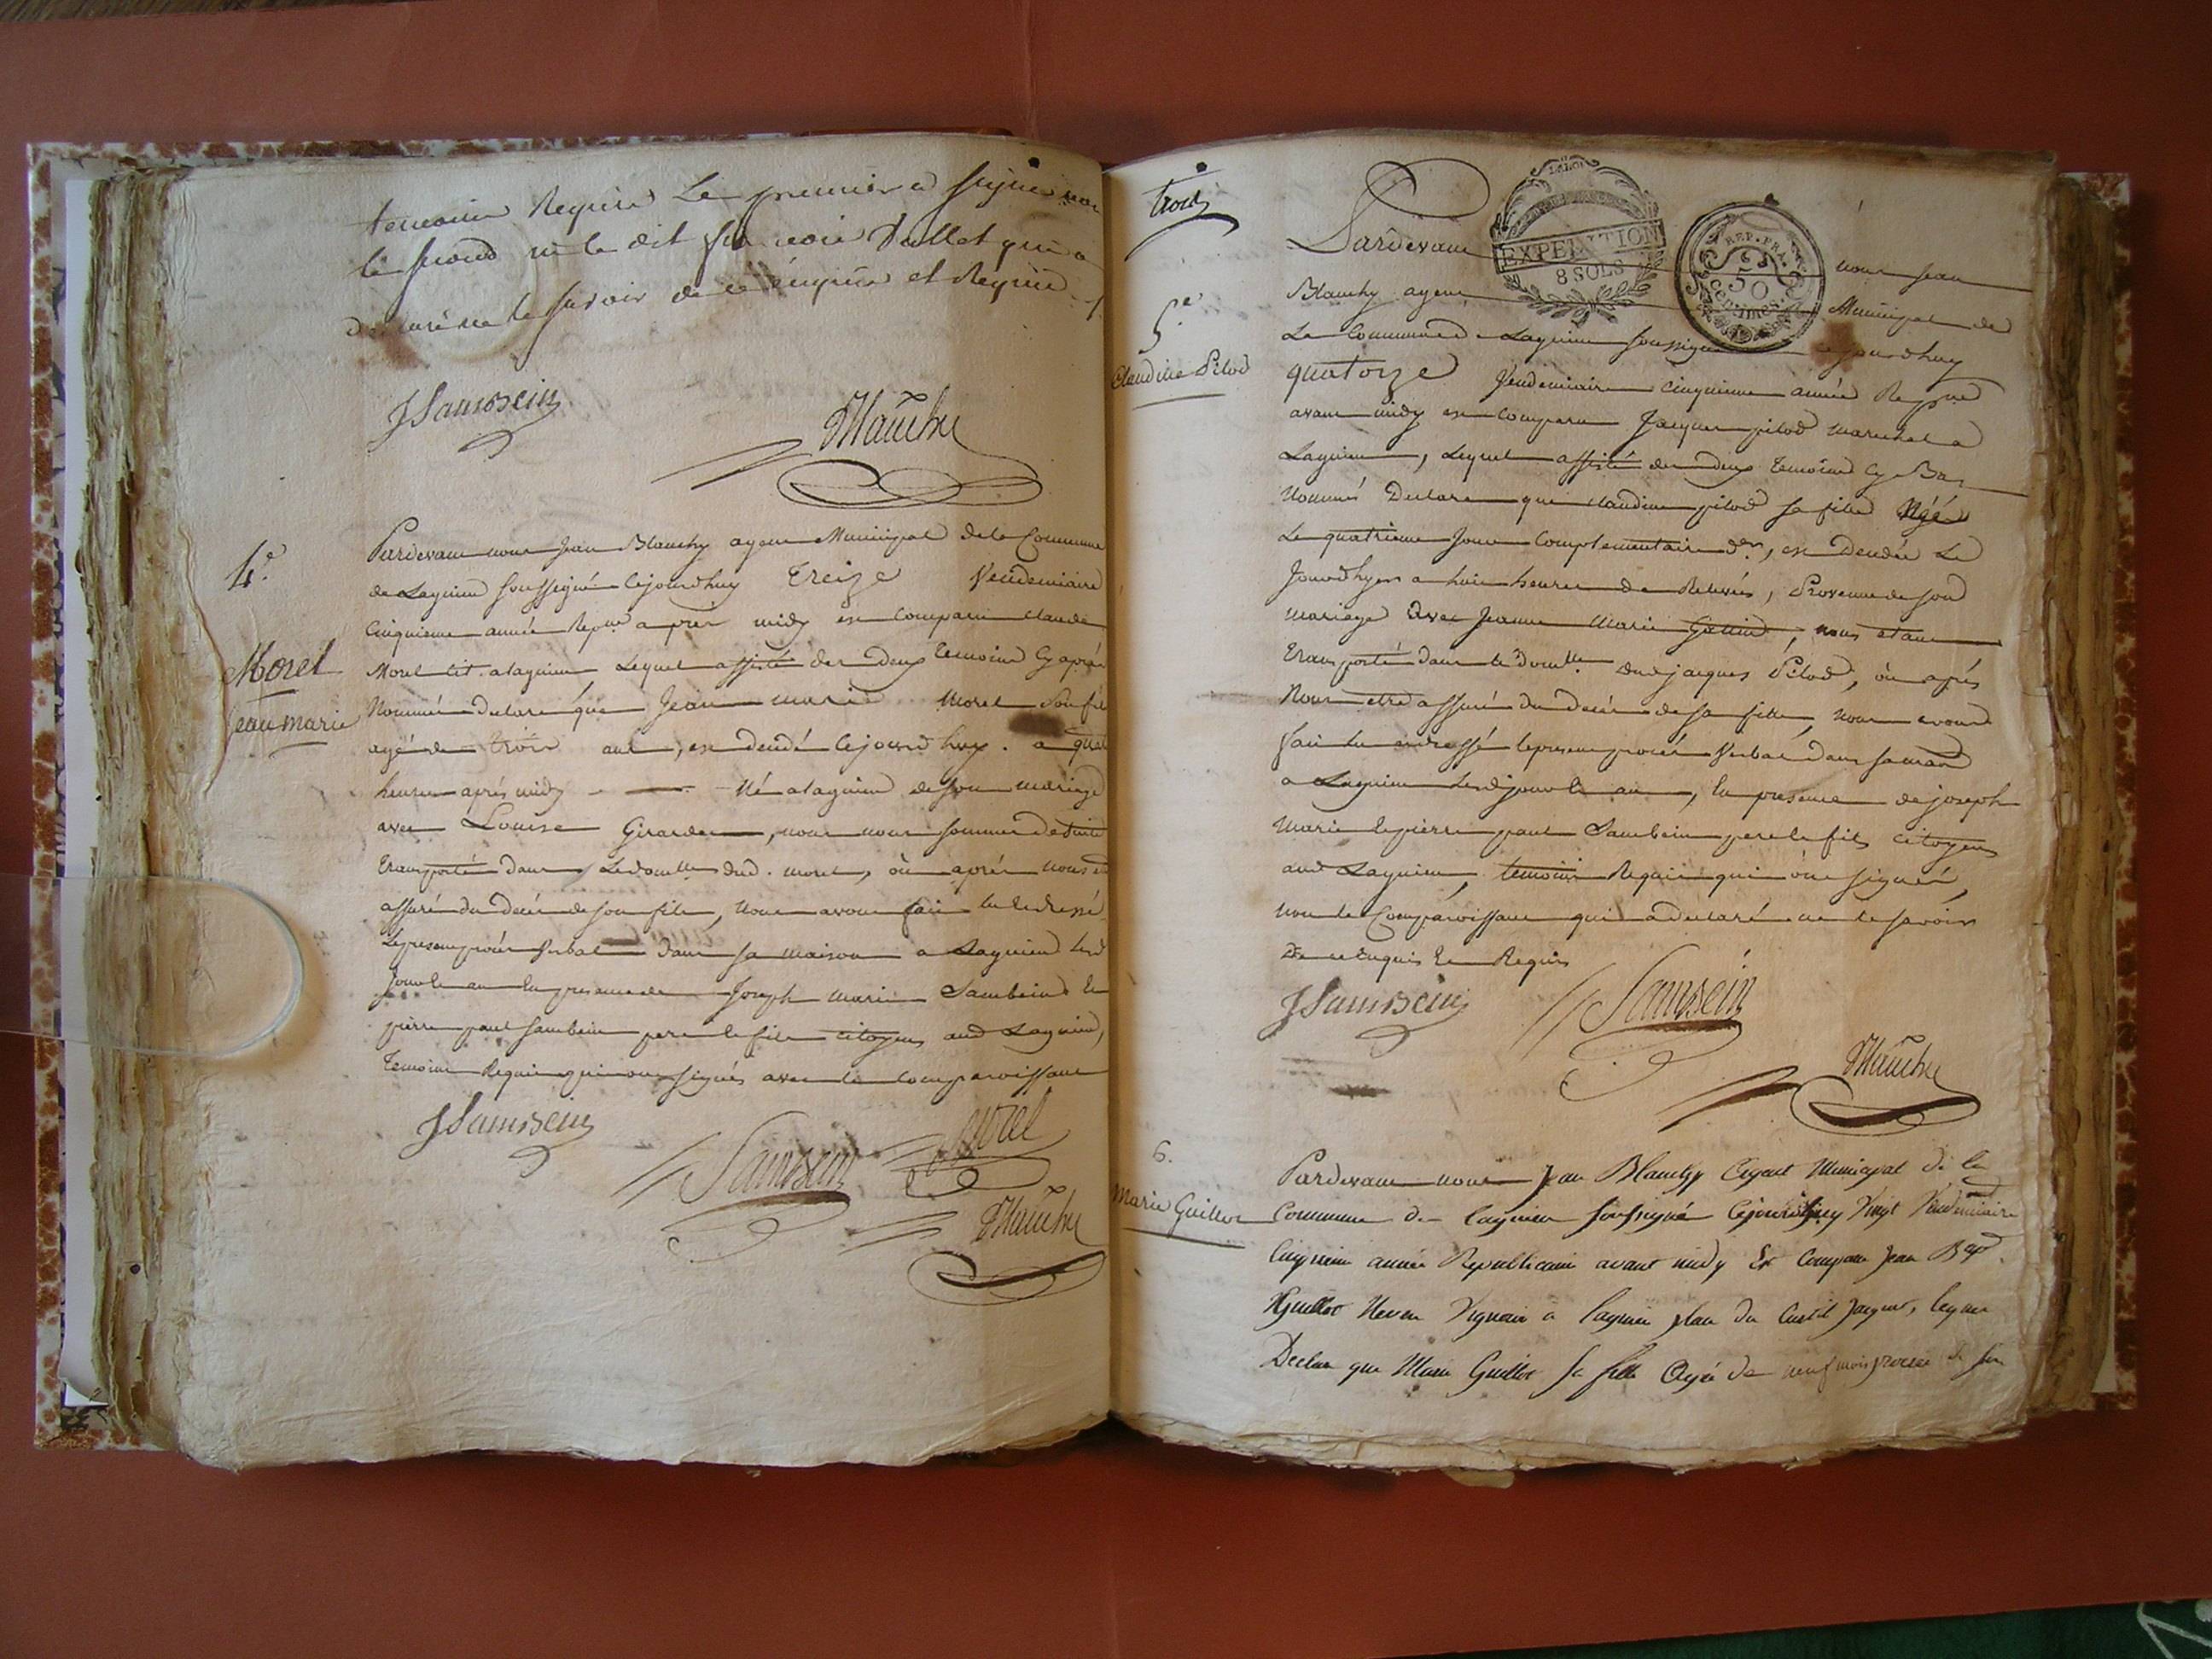 temoins Requis Le premier a signé non
le second ni le dit
declaré ne le savoir de ce enquis et Requis
JSambein
Blanchy
4e
Morel
Jean marie
Pardevant nous Jean Blanchy agent Municipal de la Commune
de Lagnieu soussigné Cejourdhuy Treize Vendemiaire
Cinquieme année Repne après midy est comparu Claude
Morel a lagnieu, Lequel assisté des deux temoins Cy après
Nommés declare que Jean marie Morel Son fils
agé de trois ans, est décédé Cejourdhuy a quat
heures après midy Né a lagnieu de son mariage
avec Louise Girardet, nous nous sommes de suite
transporté dans Le domlle dud. morel, où après nous etre
assuré du decés de son fils, nous avons fait lu et dressé
Le present procés verbal dans sa maison a Lagnieu lesd
jour et an en presence de Joseph marie Sambein et
pierre paul Sambein pere et fils citoyens aud Lagnieu,
Temoins Requis qui ont signés avec le comparoissant
JSambein
Sambein
morel
Blanchy
trois
5e
Claudine Pilod
EXPEDITION
8 SOLS
REP. FRA.
50
centimes
Pardevant nous Jean
Blanchy agent Municipal de
La Commune de Lagnieu soussigné Cejourdhuy
quatorze Vendemiaire cinquieme année Repne
avant midy est comparu Jacques pilod marechal a
Lagnieu, Lequel assisté des deux temoins Cy Bas
Nommés Declare que claudine pilod sa fille Née
Le quatrieme Jour Complementaire der, est Decedée Le
Jourdhyer a huit heures de Relevée, Provenue de son
mariage avec Jeanne Marie, nous etant
transporté dans le Domlle dud jacques Pilod, où après
Nous etre assuré du decés de sa fille, Nous avons
fait lu et dressé le present procés Verbal dans sa maison
a Lagnieu Lesd jour et an, en presence de joseph
Marie et pierre paul Sambein pere et fils citoyens
aud Lagnieu, temoins Requis qui ont signés,
non le Comparoissant qui a declaré ne le savoir
De ce enquis et Requis
JSambein
Sambein
Blanchy
6.
Marie Guillot
Pardevant nous Jean Blanchy Agent Municipal de la
Commune de lagnieu soussigné Cejourdhuy Vingt Vendemiaire
Cinquieme année Republicaine avant midy Est Comparu Jean Bapt
Guillot Vigneron a lagnieu, lequel
Declare que Marie Guillot sa fille Agée de neuf mois provenue de son